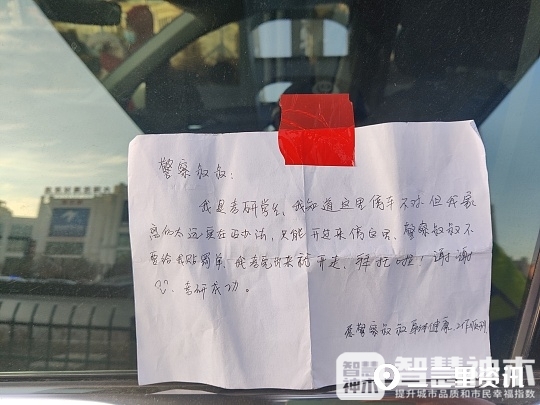 警察叔叔:
我是考研学生、我知道这里停车不对但我家
离的太远实在没办法,只能开过来停这里、警察叔叔不
要给我贴罚单、我考完出来就开走、拜托啦!谢谢
考研成功。
愿警察叔叔身体健康、工作顺利
智慧神木
智慧神木
提升城市品质和市民幸福指数
资讯